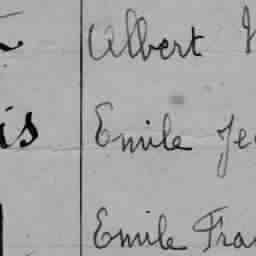 Albert
is Emile Je
Emile Fra